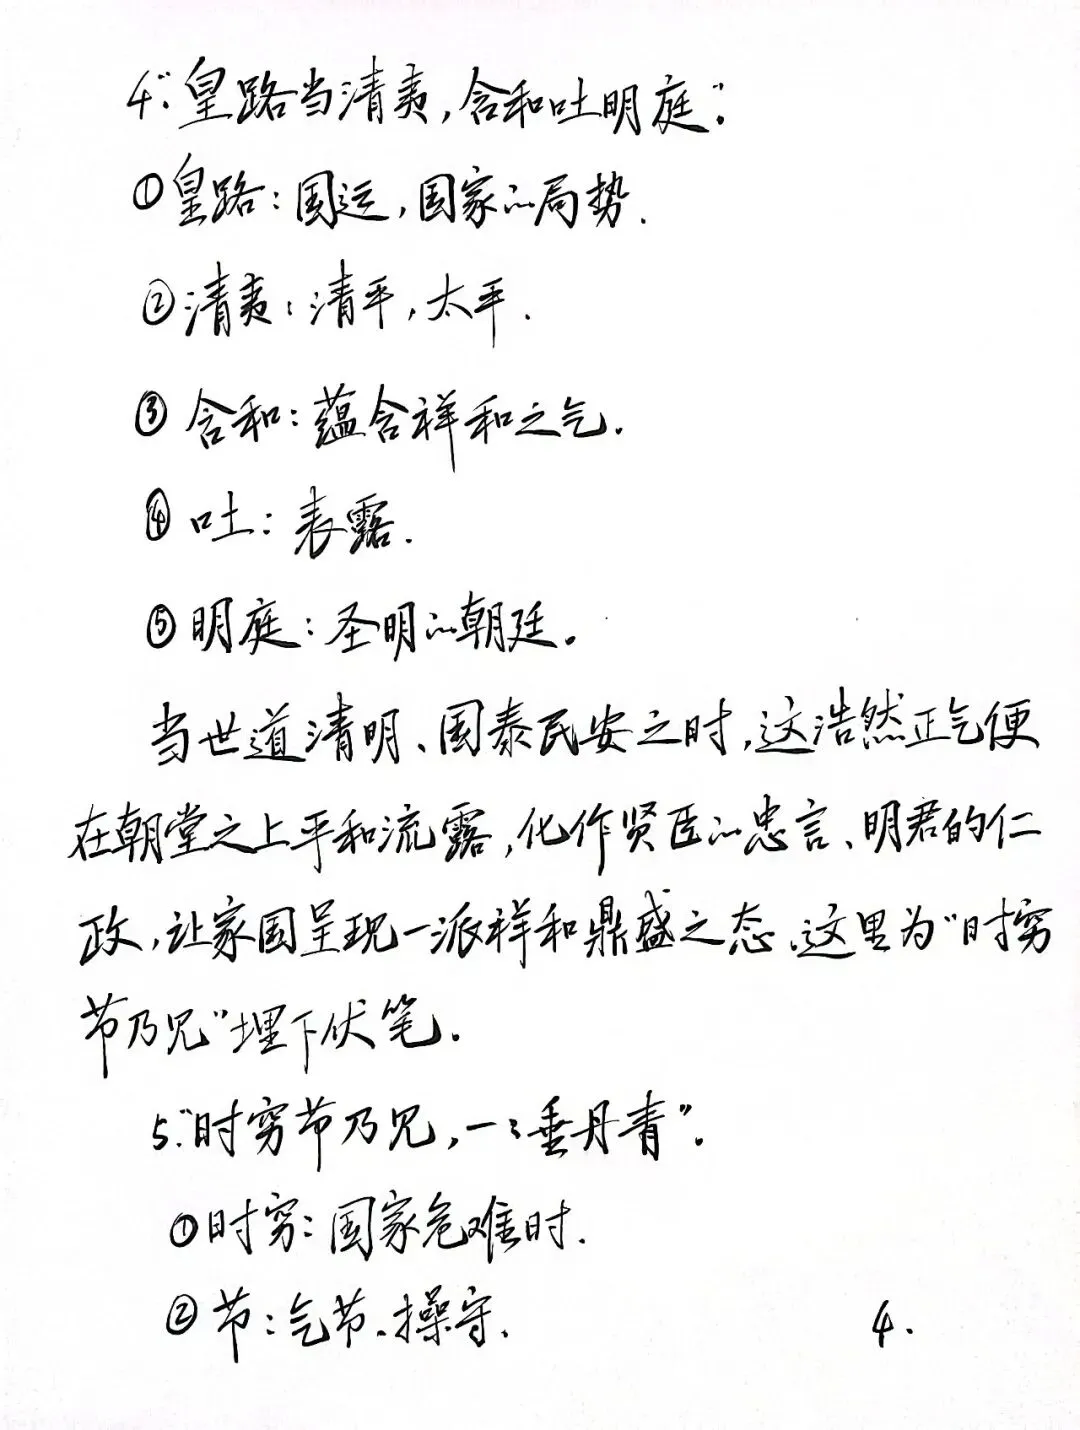 4."皇路当清夷,含和吐明庭".
①皇路:国运,国家的局势.
②清夷:清平,太平.
③含和:蕴含祥和之气.
④吐:表露.
⑤明庭:圣明的朝廷.
当世道清明、国泰民安之时,这浩然正气便
在朝堂之上平和流露,化作贤臣的忠言、明君的仁
政,让家国呈现一派祥和鼎盛之态.这里为"时穷
节乃见"埋下伏笔.
5."时穷节乃见,一々垂丹青".
①时穷:国家危难时.
②节:气节、操守.
4.